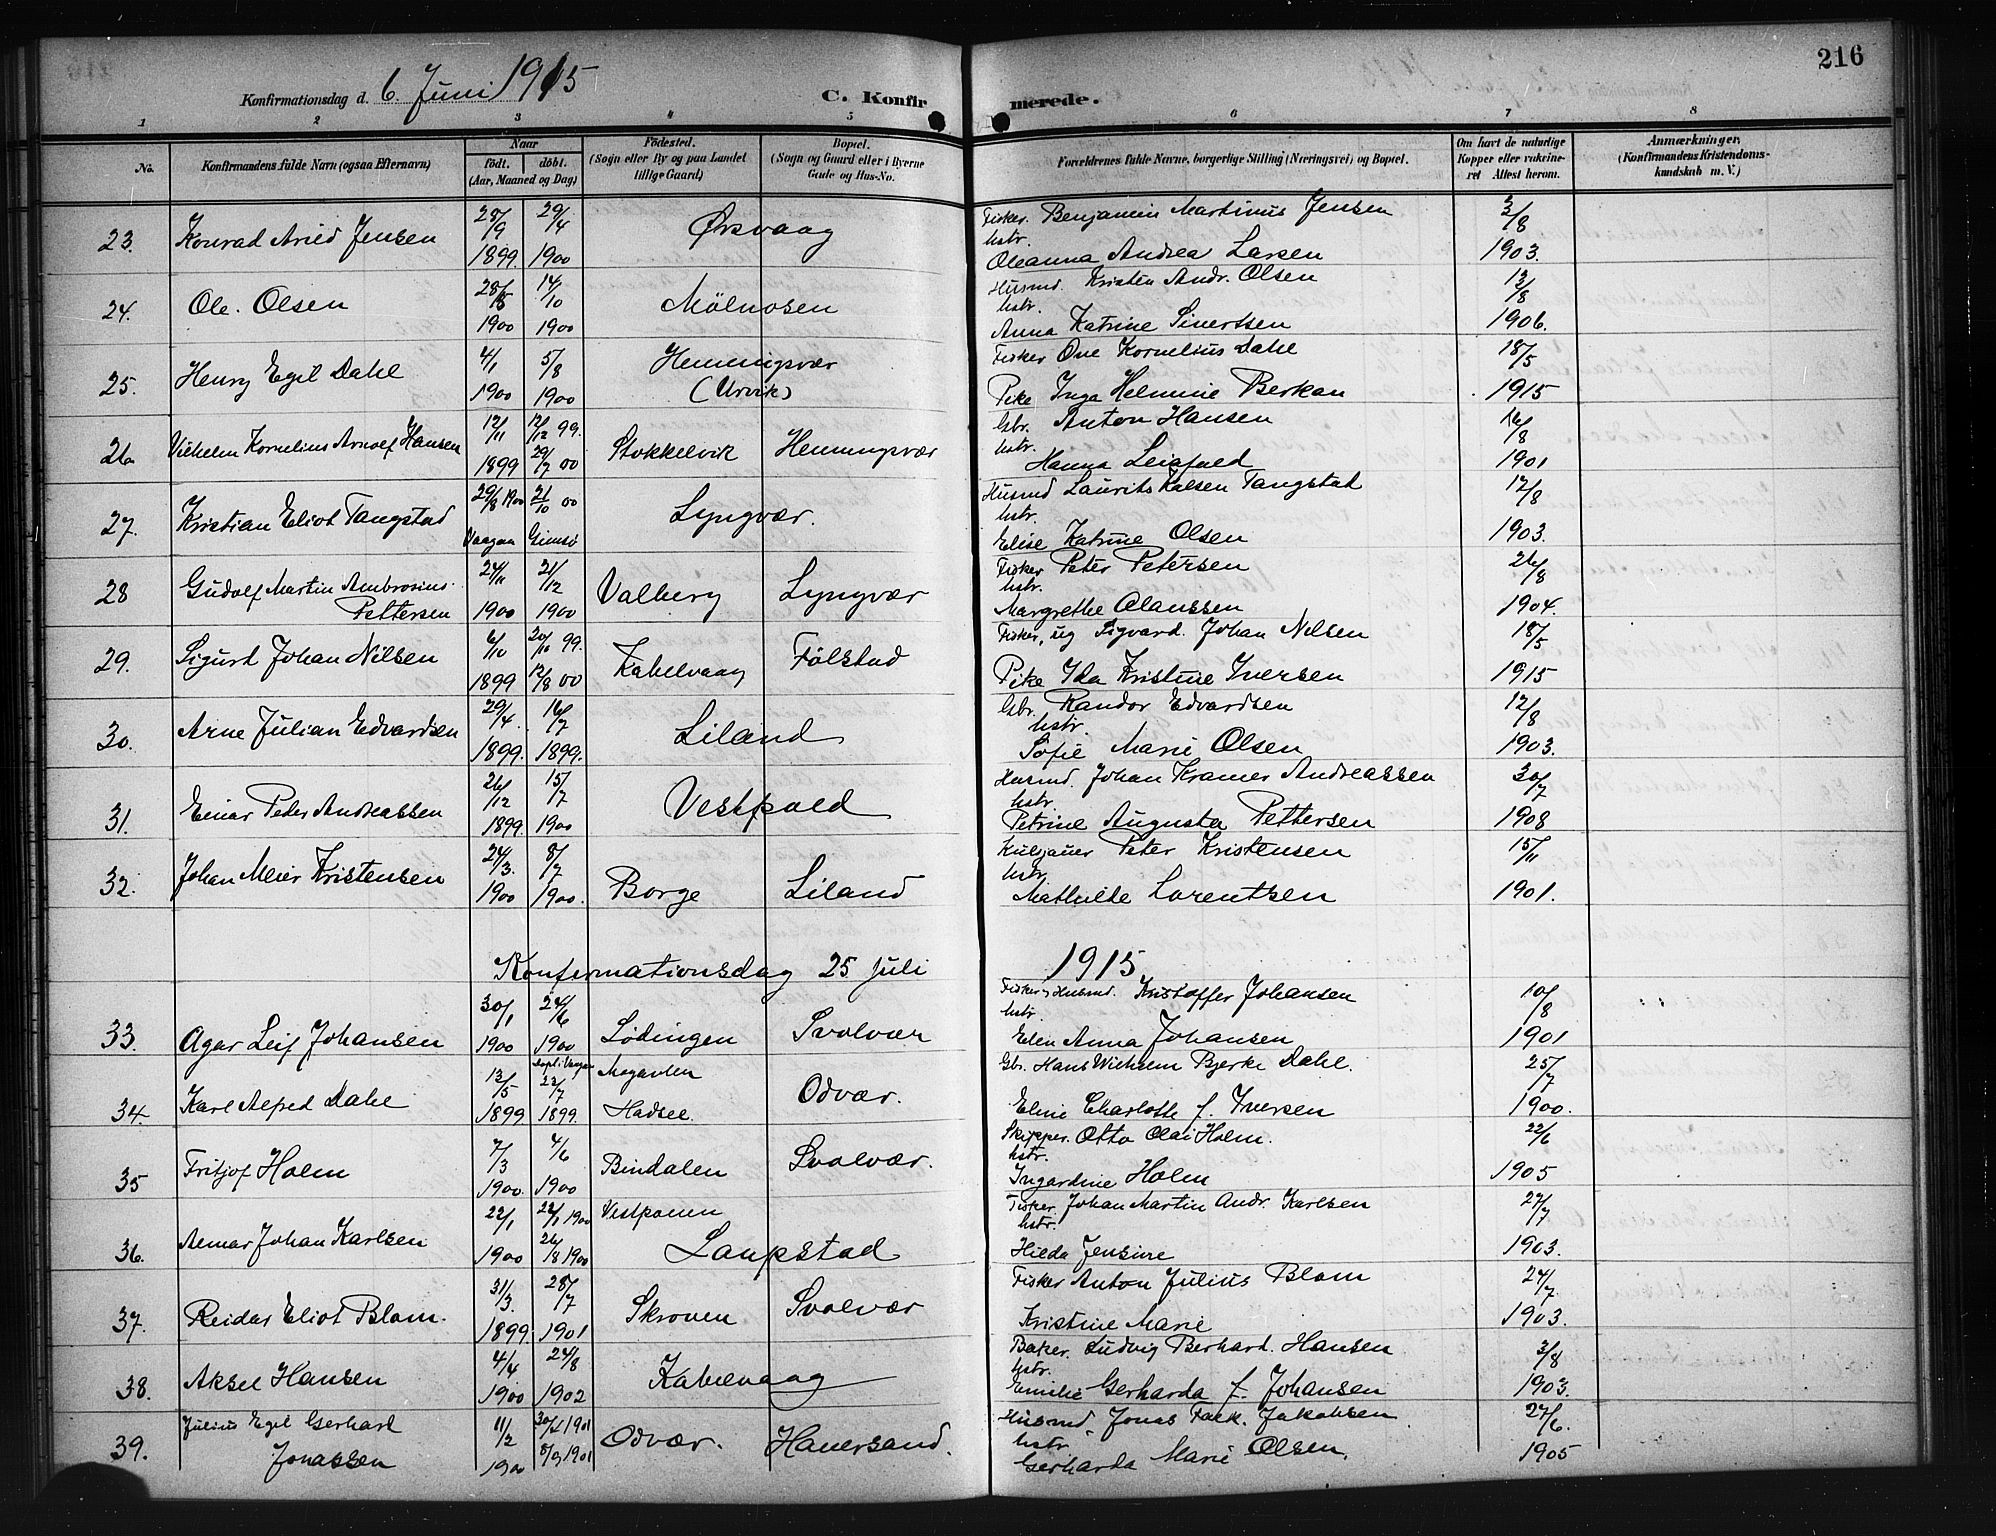 Konfirmationsdag d. 6. Juni 1915
C. Konfirmerede.
216
1 2 3 4 5 6 7 8
No. Konfirmandens fulde Navn (ogsaa Efternavn) Naar født. døbt. (Aar, Maaned og Dag) Fødested. (Sogn eller By og paa Landet tillige Gaard) Bopæl. (Sogn og Gaard eller i Byerne Gade og Hus-No. Forældrenes fulde Navne, borgerlige Stilling (Næringsvei) og Bopæl. Om havt de naturlige Kopper eller vakcineret Attest herom. Anmærkninger. (Konfirmandens Kristendomskundskab m. V.)
23. Konrad Arild Jensen 28/9 1899. 29/4 1900 Ørsvaag Fisker. Benjamin Martinus Jensen hstr. Oleanna Andrea Larsen 3/8 1903.
24. Ole Olsen 28/5 1900 14/10 1900 Mølnosen Husmd. Kristen Andr. Olsen hstr. Anna Katrine Sivertsen 13/8 1906.
25. Henry Egil Dahl 4/1 1900 5/8 1900 Henningsvær (Urvik) Fisker Ove Kornelius Dahl Pike Inga Helmine Berkan 18/5 1915
26 Vilhelm Kornelius Arnolf Hansen 12/11 1899 12/12 99. 29/7 00 Stokkelvik Henningsvær Gbr. Anton Hansen hstr. Hanna Leigfald 16/8 1901
27. Kristian Eliot Tangstad 29/8 1900 Vaagan 21/10 00 Gimsø Lyngvær. Husmd Laurits Kalsen Tangstad hstr. Elise Katrine Olsen 12/8 1903.
28 Gudolf Martin Ambrosius Pettersen 24/11 1900 21/12 1900 Valberg Lyngvær Fisker Peter Petersen hstr. Margrethe Olaussen 26/8 1904.
29. Sigurd Johan Nilsen 6/10 1899 20/10 99. 12/8 00 Kabelvaag Følstad Fisker, ug Sigvard. Johan Nilsen Pike Ida Kristine Iversen 18/5 1915
30. Arne Julian Edvardsen 29/4 1899. 16/7 1899. Liland Gbr. Randor Edvardsen hstr. Sofie Marie Olsen 12/8 1903.
31. Einar Peder Andreassen 26/12 1899. 15/7 1900 Vestpold Husmd. Johan Kramer Andreassen hstr. Petrine Augusta Pettersen 30/7 1908
32. Johan Meier Kristensen 24/3. 1900 8/7 1900. Borge Liland Kulsjauer Peter Kristensen hstr. Mathilde Lorentsen 15/11 1901.
Konfirmationsdag 25 Juli 1915
33. Agar Leif Johansen 30/1 1900 24/6 1900 Lødingen Svolvær Fisker, Husmd. Kristoffer Johansen hstr. Elen Anna Johansen 10/8 1901
34. Karl Alfred Dahl 13/5 1899 22/7 1899. Hadsel Odvær. Gbr. Hans Wilhelm Bjerke Dahl. Eline Charlotte f. Iversen 25/7 1900.
35 Fritjof Holm 7/3 1900. 4/6 1900 Bindalen Svolvær. Skipper. Otto Olai Holm. hstr. Ingardine Holm 22/6 1905
36. Johan Karlsen 22/1 1900 22/1 1900 26/8 1900 Laupstad Fisker. Johan Martin Andr. Karlsen hstr. Hilda Jensine 27/7 1903.
37. Reidar Eliot Blom. 31/3. 1899. 28/7 1901 Skroven Svolvær Fisker Anton Julius Blom Kristine Marie 24/7 1903.
38. Aksel Hansen 4/4 1900 24/8 1902 Kabelvaag Baker. Ludvig Berhard. Hansen hstr. Emilie Gerharda f. Johansen 3/8 1903.
39. Julius Egil Gerhard Jonassen 11/2 1900 8/9 1901 Odvær. Husmd. Jonas Falk. Jakobsen hstr Gerharda Marie Olsen. 27/6. 1905